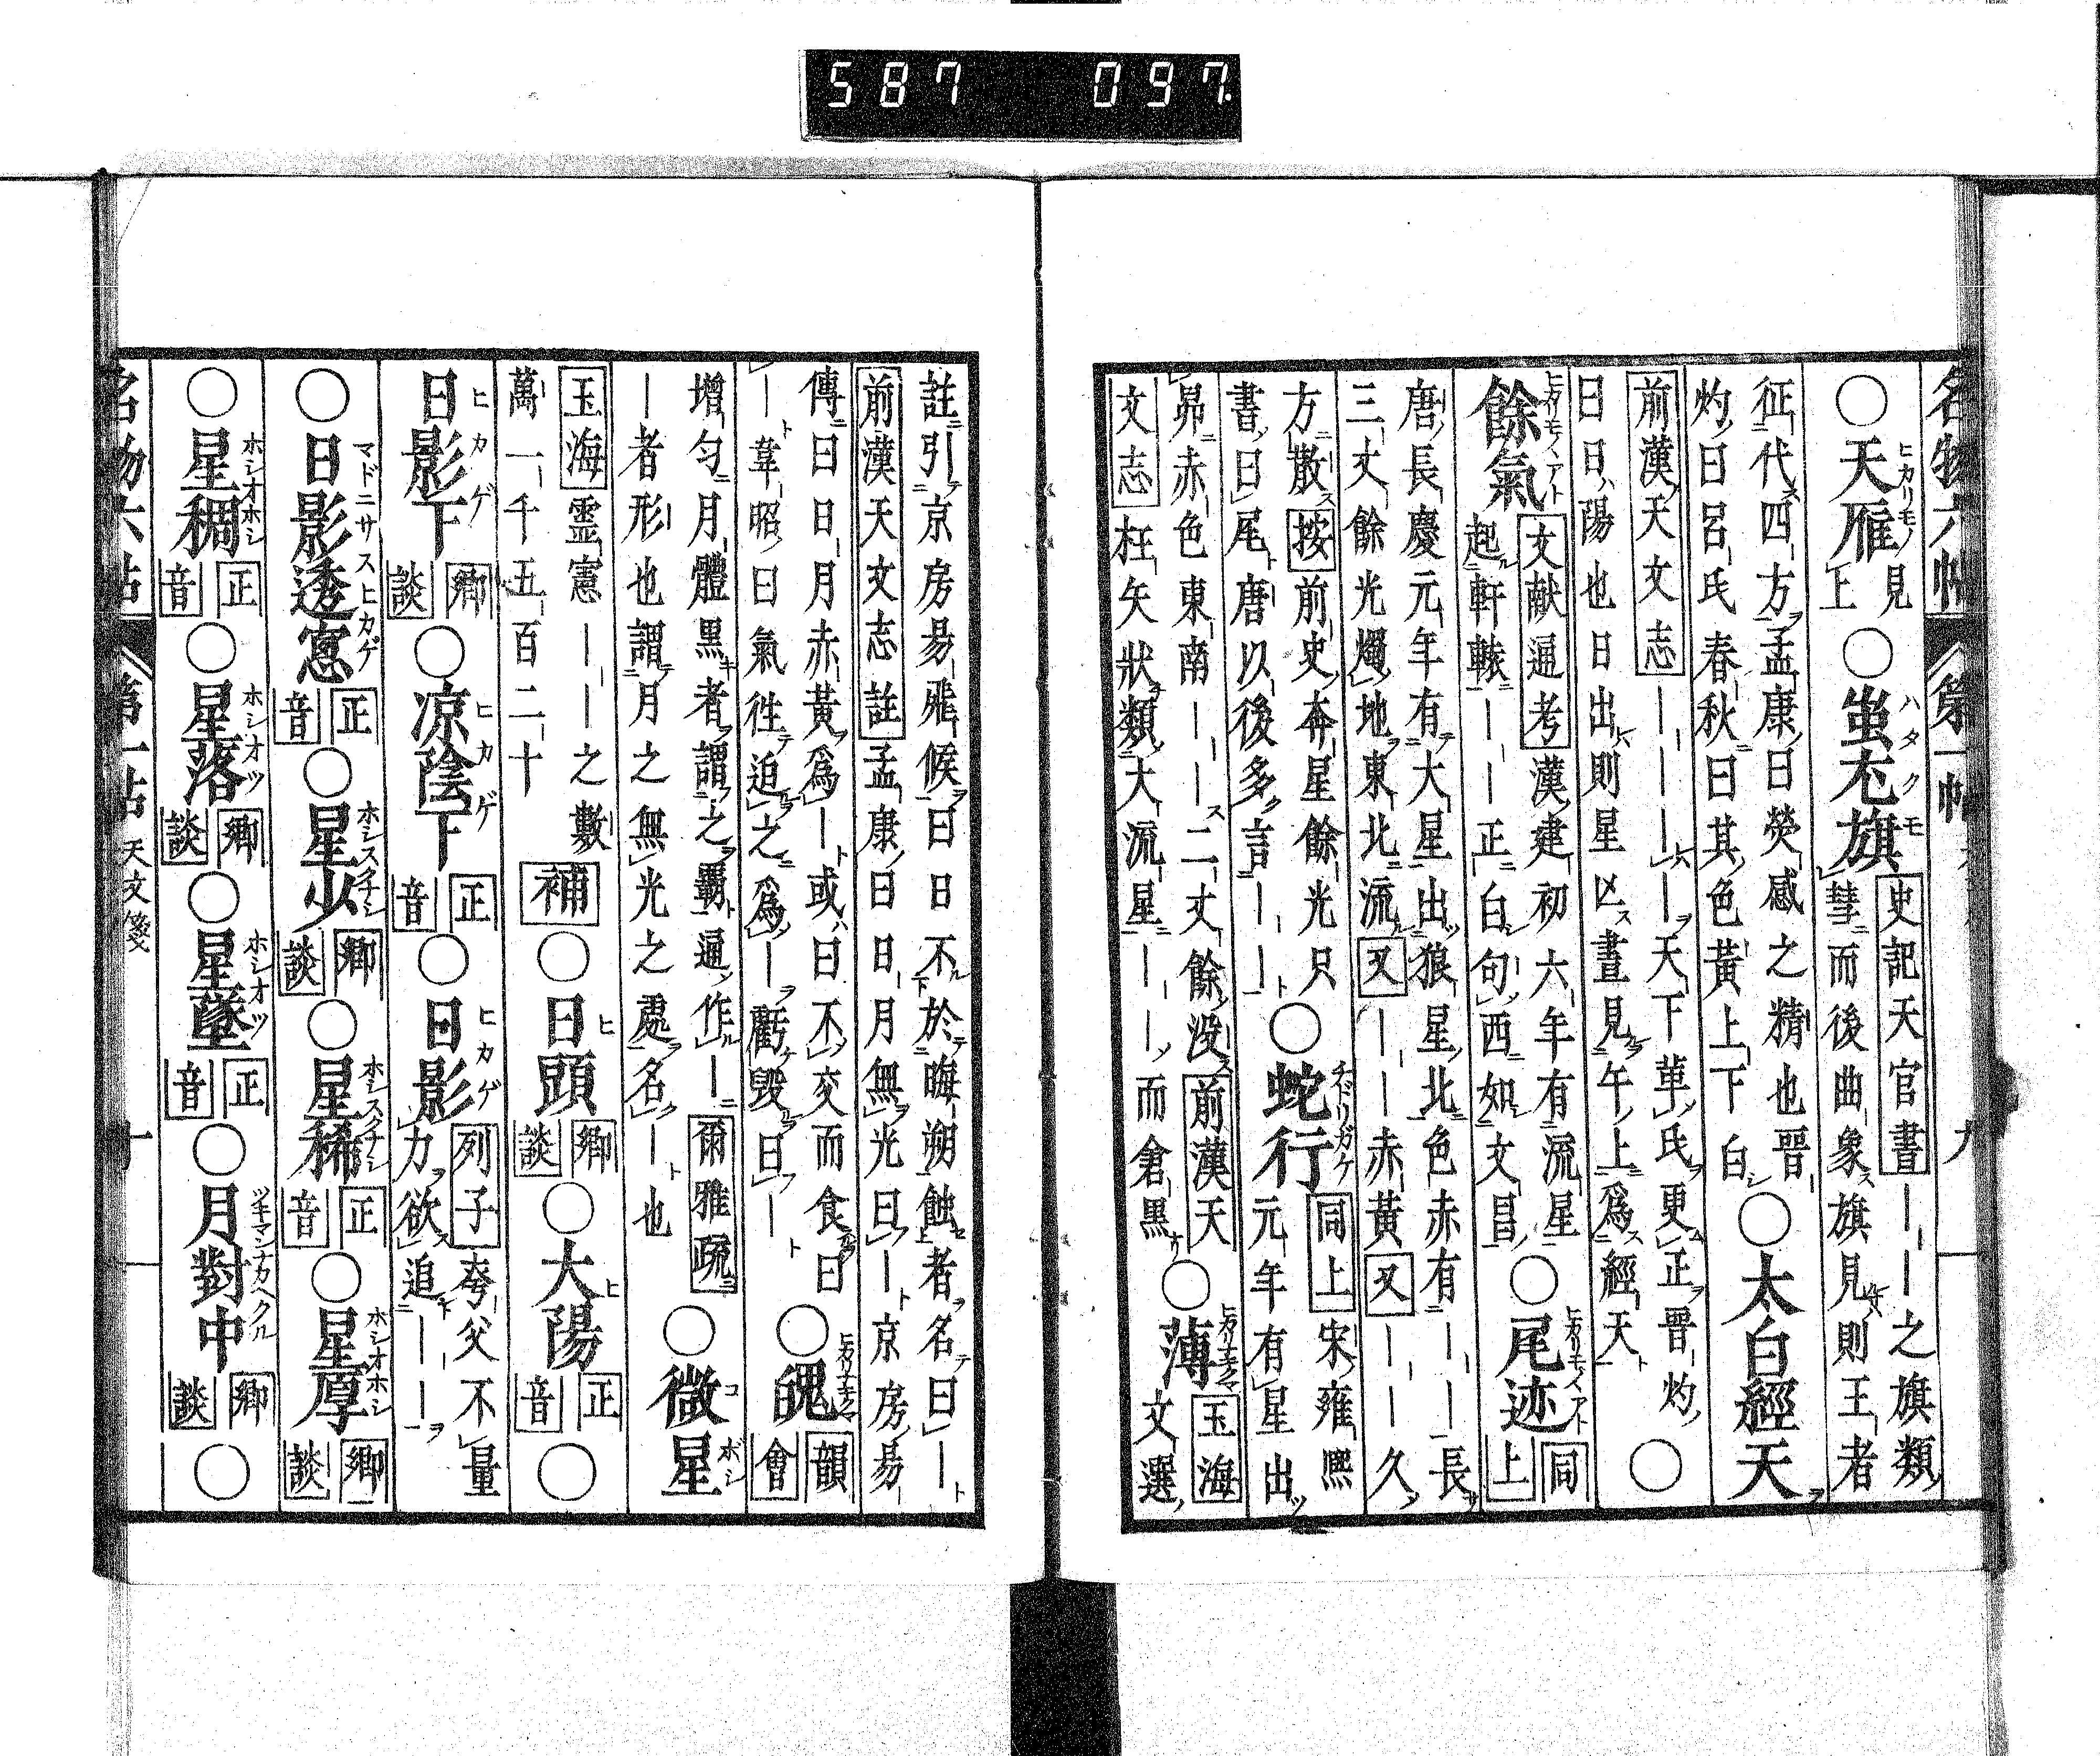 587 097.
名物六帖 第一帖 九
○天雁 見上 ○蚩尤旗 史記天官書——之旗類
彗而後曲象旗見則王者
征代四方孟康曰熒惑之精也晋
灼曰呂氏春秋曰其色黃上下白 ○太白經天
前漢天文志————天下革民更正晋灼
曰日陽也日出則星亡晝見午上爲經天 ○
餘氣 文献通考漢建初六年有流星
起軒轅———正白句西如文昌 ○尾迹 同上
唐長慶元年有大星出狼星北色赤有——長
三丈餘光燭地東北流又——赤黃又——久
方散按前史奔星餘光只
書曰尾唐以後多言—— ○蛇行 同上宋雍熈
元年有星出
昴赤色東南——二丈餘没前漢天
文志枉矢狀類大流星——而倉黑 ○薄 玉海
文選
註引京房易飛候曰日不於晦朔蝕者名曰—
前漢天文志註孟康曰日月無光曰—京房易
傳曰日月赤黃爲—或曰不交而食曰
—韋昭曰氣徃迫之爲—虧毀曰— ○魄 韻會
增匀月體黑者謂之霸通作—爾雅疏
—者形也謂月之無光之處名—也 ○微星
玉海靈憲——之數
萬一千五百二十 補 ○日頭 卿談 ○大陽 正音 ○
日影下 卿談 ○凉陰下 正音 ○日影 列子夸父不量
力欲追——
○日影透窓 正音 ○星少 卿談 ○星稀 正音 ○星厚 卿談
○星稠 正音 ○星落 卿談 ○星墜 正音 ○月對中 卿談 ○
名物六帖 第一帖 天文箋 十